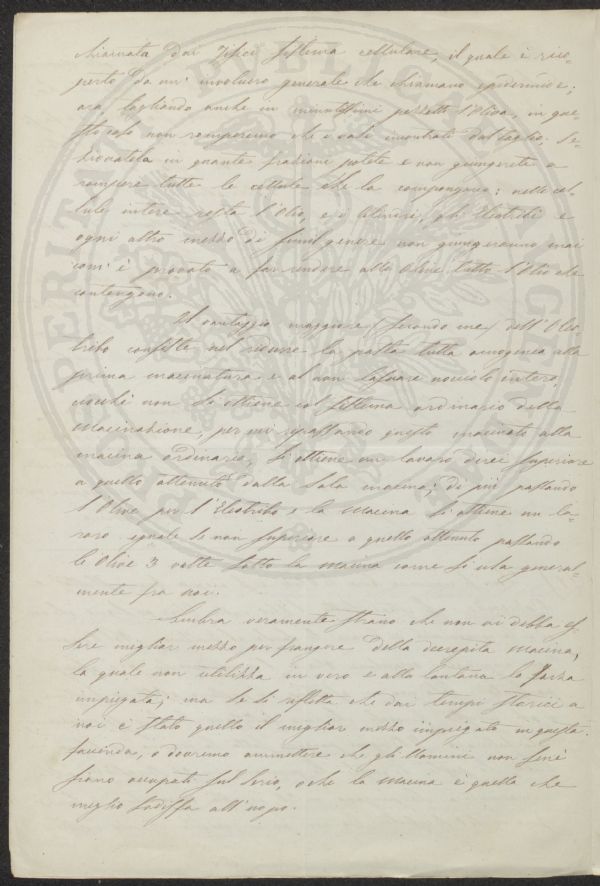 chiamata dai Fisici sistema cellulare, il quale è rico-
perto da un' involucro generale che chiamano epidermide;
ora tagliando anche in minutissimi pezzetti l'Oliva, in que-
sto caso non romperemo che i vasi incontrati dal taglio. Se-
zionatela in quante frazioni potete e non giungerete a
rompere tutte le cellule che la compongono: nelle cel-
lule intere resta l'Olio, e i Cilindri, gli Eleotribi e
ogni altro mezzo di simil genere non giungeranno mai
com' è provato a far rendere alle Olive tutto l'Olio che
contengono.
Il vantaggio maggiore (secondo me) dell' Oleo
tribo consiste nel ridurre la pasta tutta omogenea alla
prima macinatura e al non lasciare nocciolo intero,
cocchè non si ottiene col sistema ordinario della
Macinazione, per cui ripassando questo macinato alla
macina ordinaria, si ottiene un lavoro direi superiore
a quello ottenuto dalla sola macina; di più passando
l'Olive per l'Eleotribo e la Macina si ottiene un la-
voro eguale se non superiore a quello ottenuto passando
le Olive 3 volte sotto la macina come si usa general-
mente fra noi.
Sembra veramente strano che non vi debba es-
sere miglior mezzo per frangere della decrepita macina,
la quale non utilizza in vero e alla lontana la forza
impiegata; ma se si rifletta che dai tempi storici a
noi è stato quello il miglior mezzo impiegato in questa
faccenda, o dovremo ammettere che gli Uomini non sene
siano occupati sul serio, o che la Macina è quella che
meglio sodisfa all'uopo.
PROSPERITAS